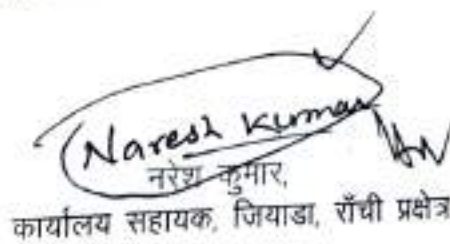 Naresh Kumar
नरेश कुमार,
कार्यालय सहायक, जियाडा, राँची प्रक्षेत्र